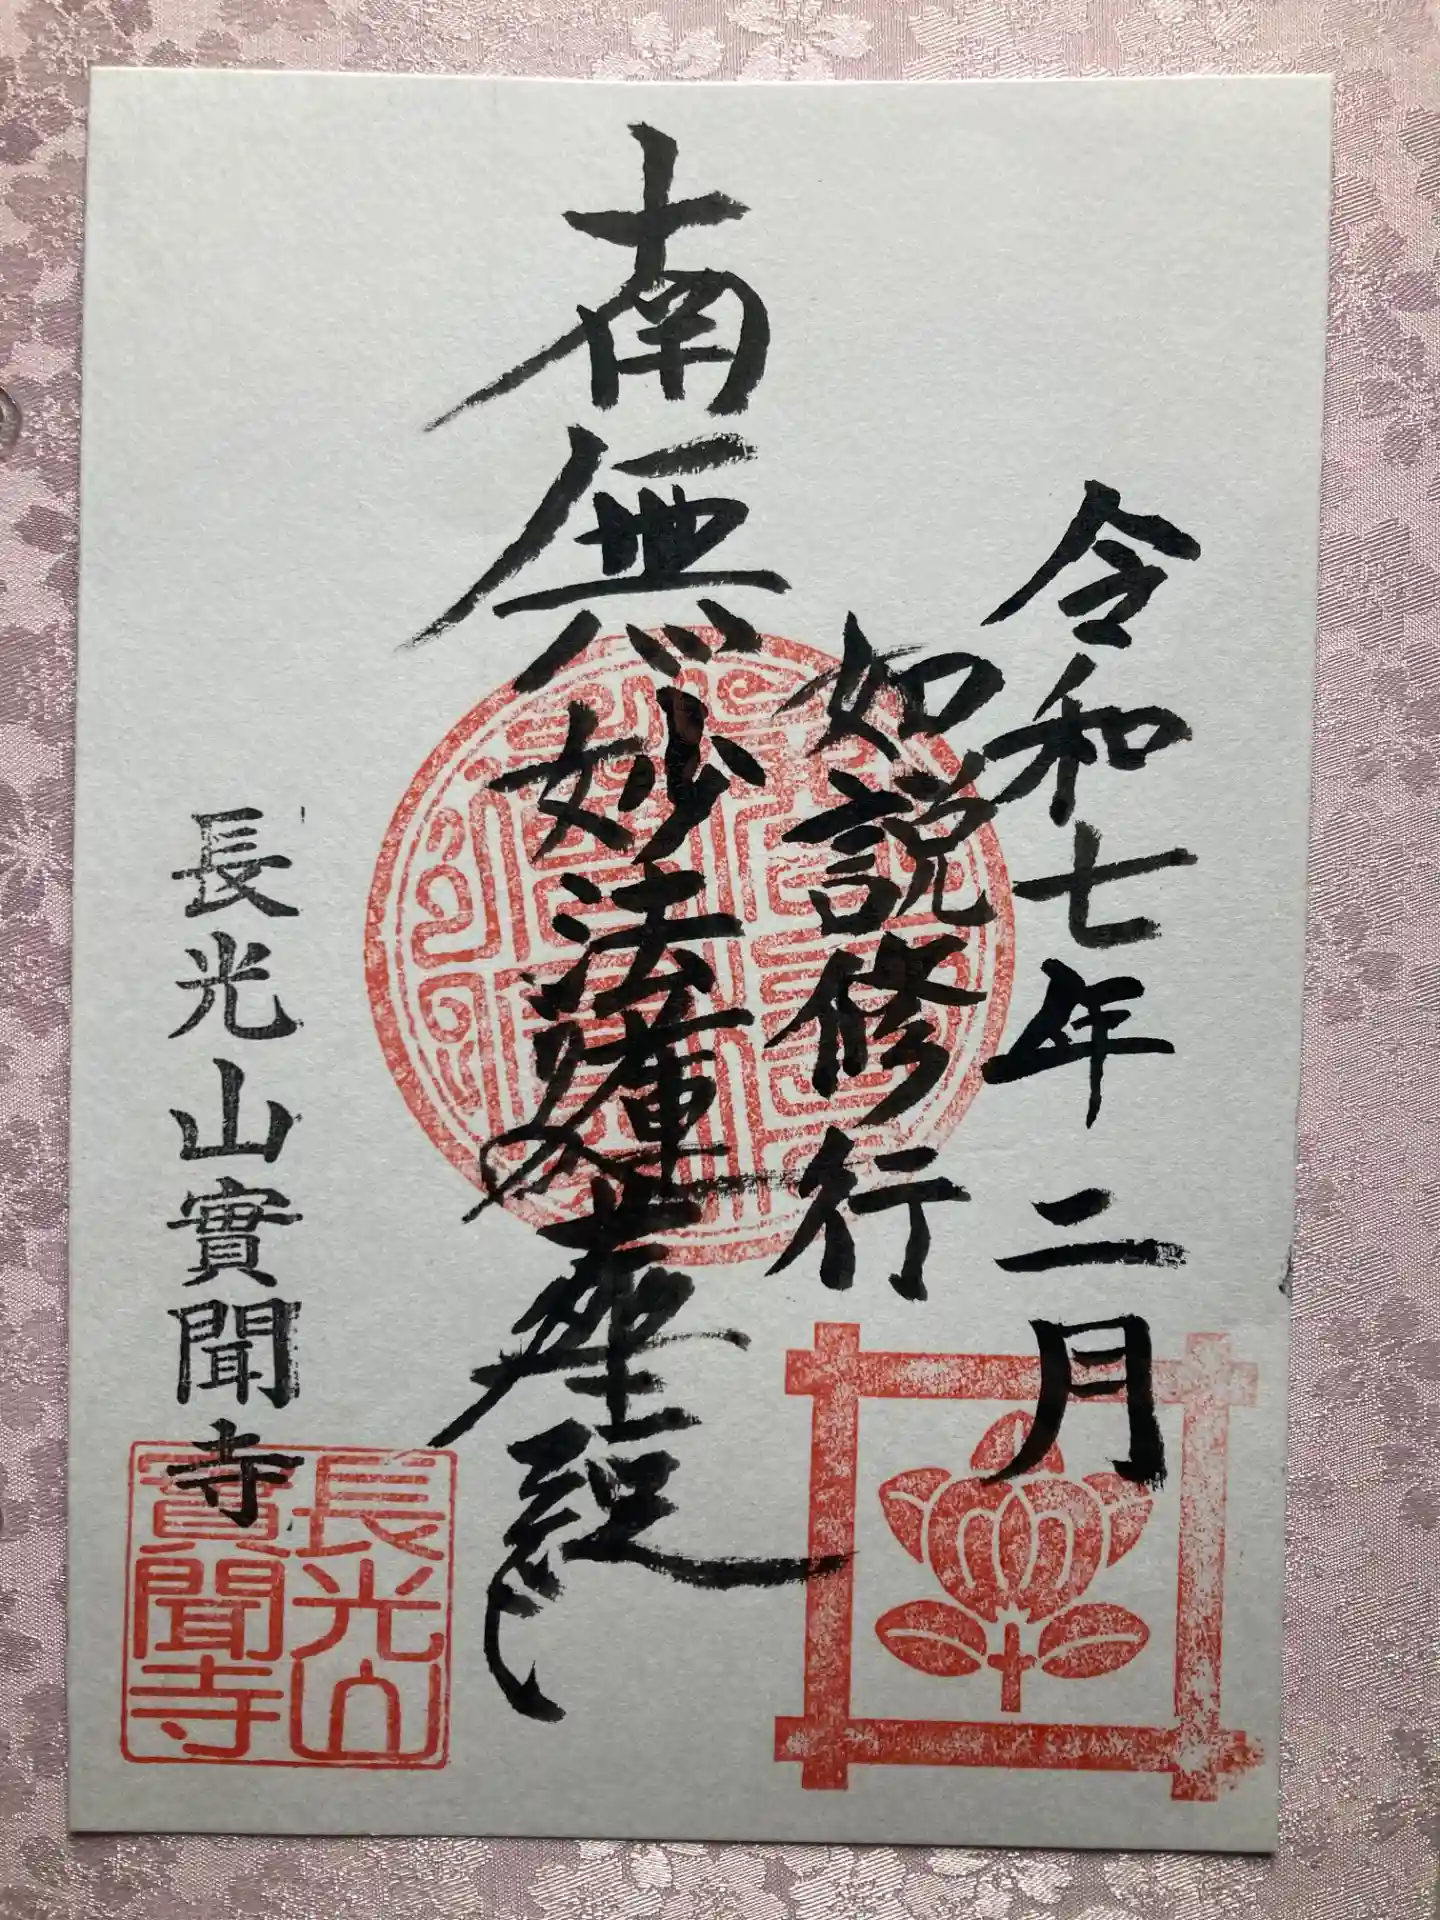 令和七年二月
如説修行
南無妙法蓮華経
長光山實聞寺
長光山
實聞寺